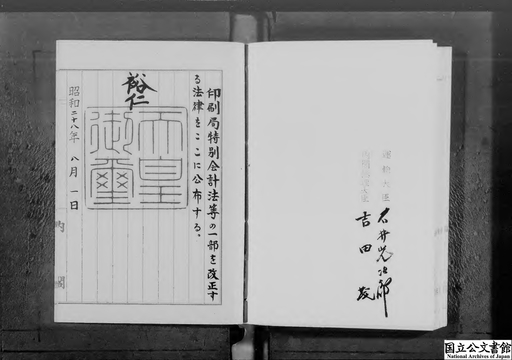 印刷局特別会計法等の一部を改正す
る法律をここに公布する。
裕仁
天皇
御璽
昭和二十八年 八月 一日
内閣
運輸大臣
石井光次郎
内閣総理大臣
吉田茂
国立公文書館
National Archives of Japan